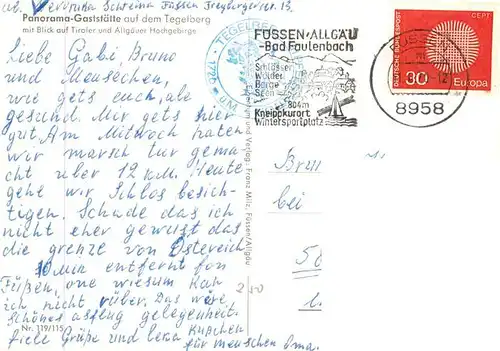 ab. Veronika Schreima Füssen Freybergstr. 13.
Panorama-Gaststätte auf dem Tegelberg
mit Blick auf Tiroler und Allgäuer Hochgebirge
Liebe Gabi, Bruno
und Meuschen,
wie gets euch, ale
gesund. Mir gets hier
gut. Am Mitwoch haten
wir marsch tur gema-
cht über 12 km. Heute
gehe wir Schlos besich-
tigen. Schade das ich
nicht eher gewust das
die grenze von Östereich
10 Min entfernt fon
Füßen, one wiesum kan
ich nicht rüber. Das wäre
Schönes ausflug gelegenheit.
fiele Grüße und Küßchen
für menschen Oma.
Nr. 119/115
Verlag: Franz Milz, Füssen/Allgäu
TEGELBERG
1720 m
FÜSSEN·ALLGÄU
-Bad Faulenbach
Schlösser
Wälder
Berge
Seen
804m
Kneippkurort
Wintersportplatz
8958
DEUTSCHE BUNDESPOST
CEPT
30
Europa
bei